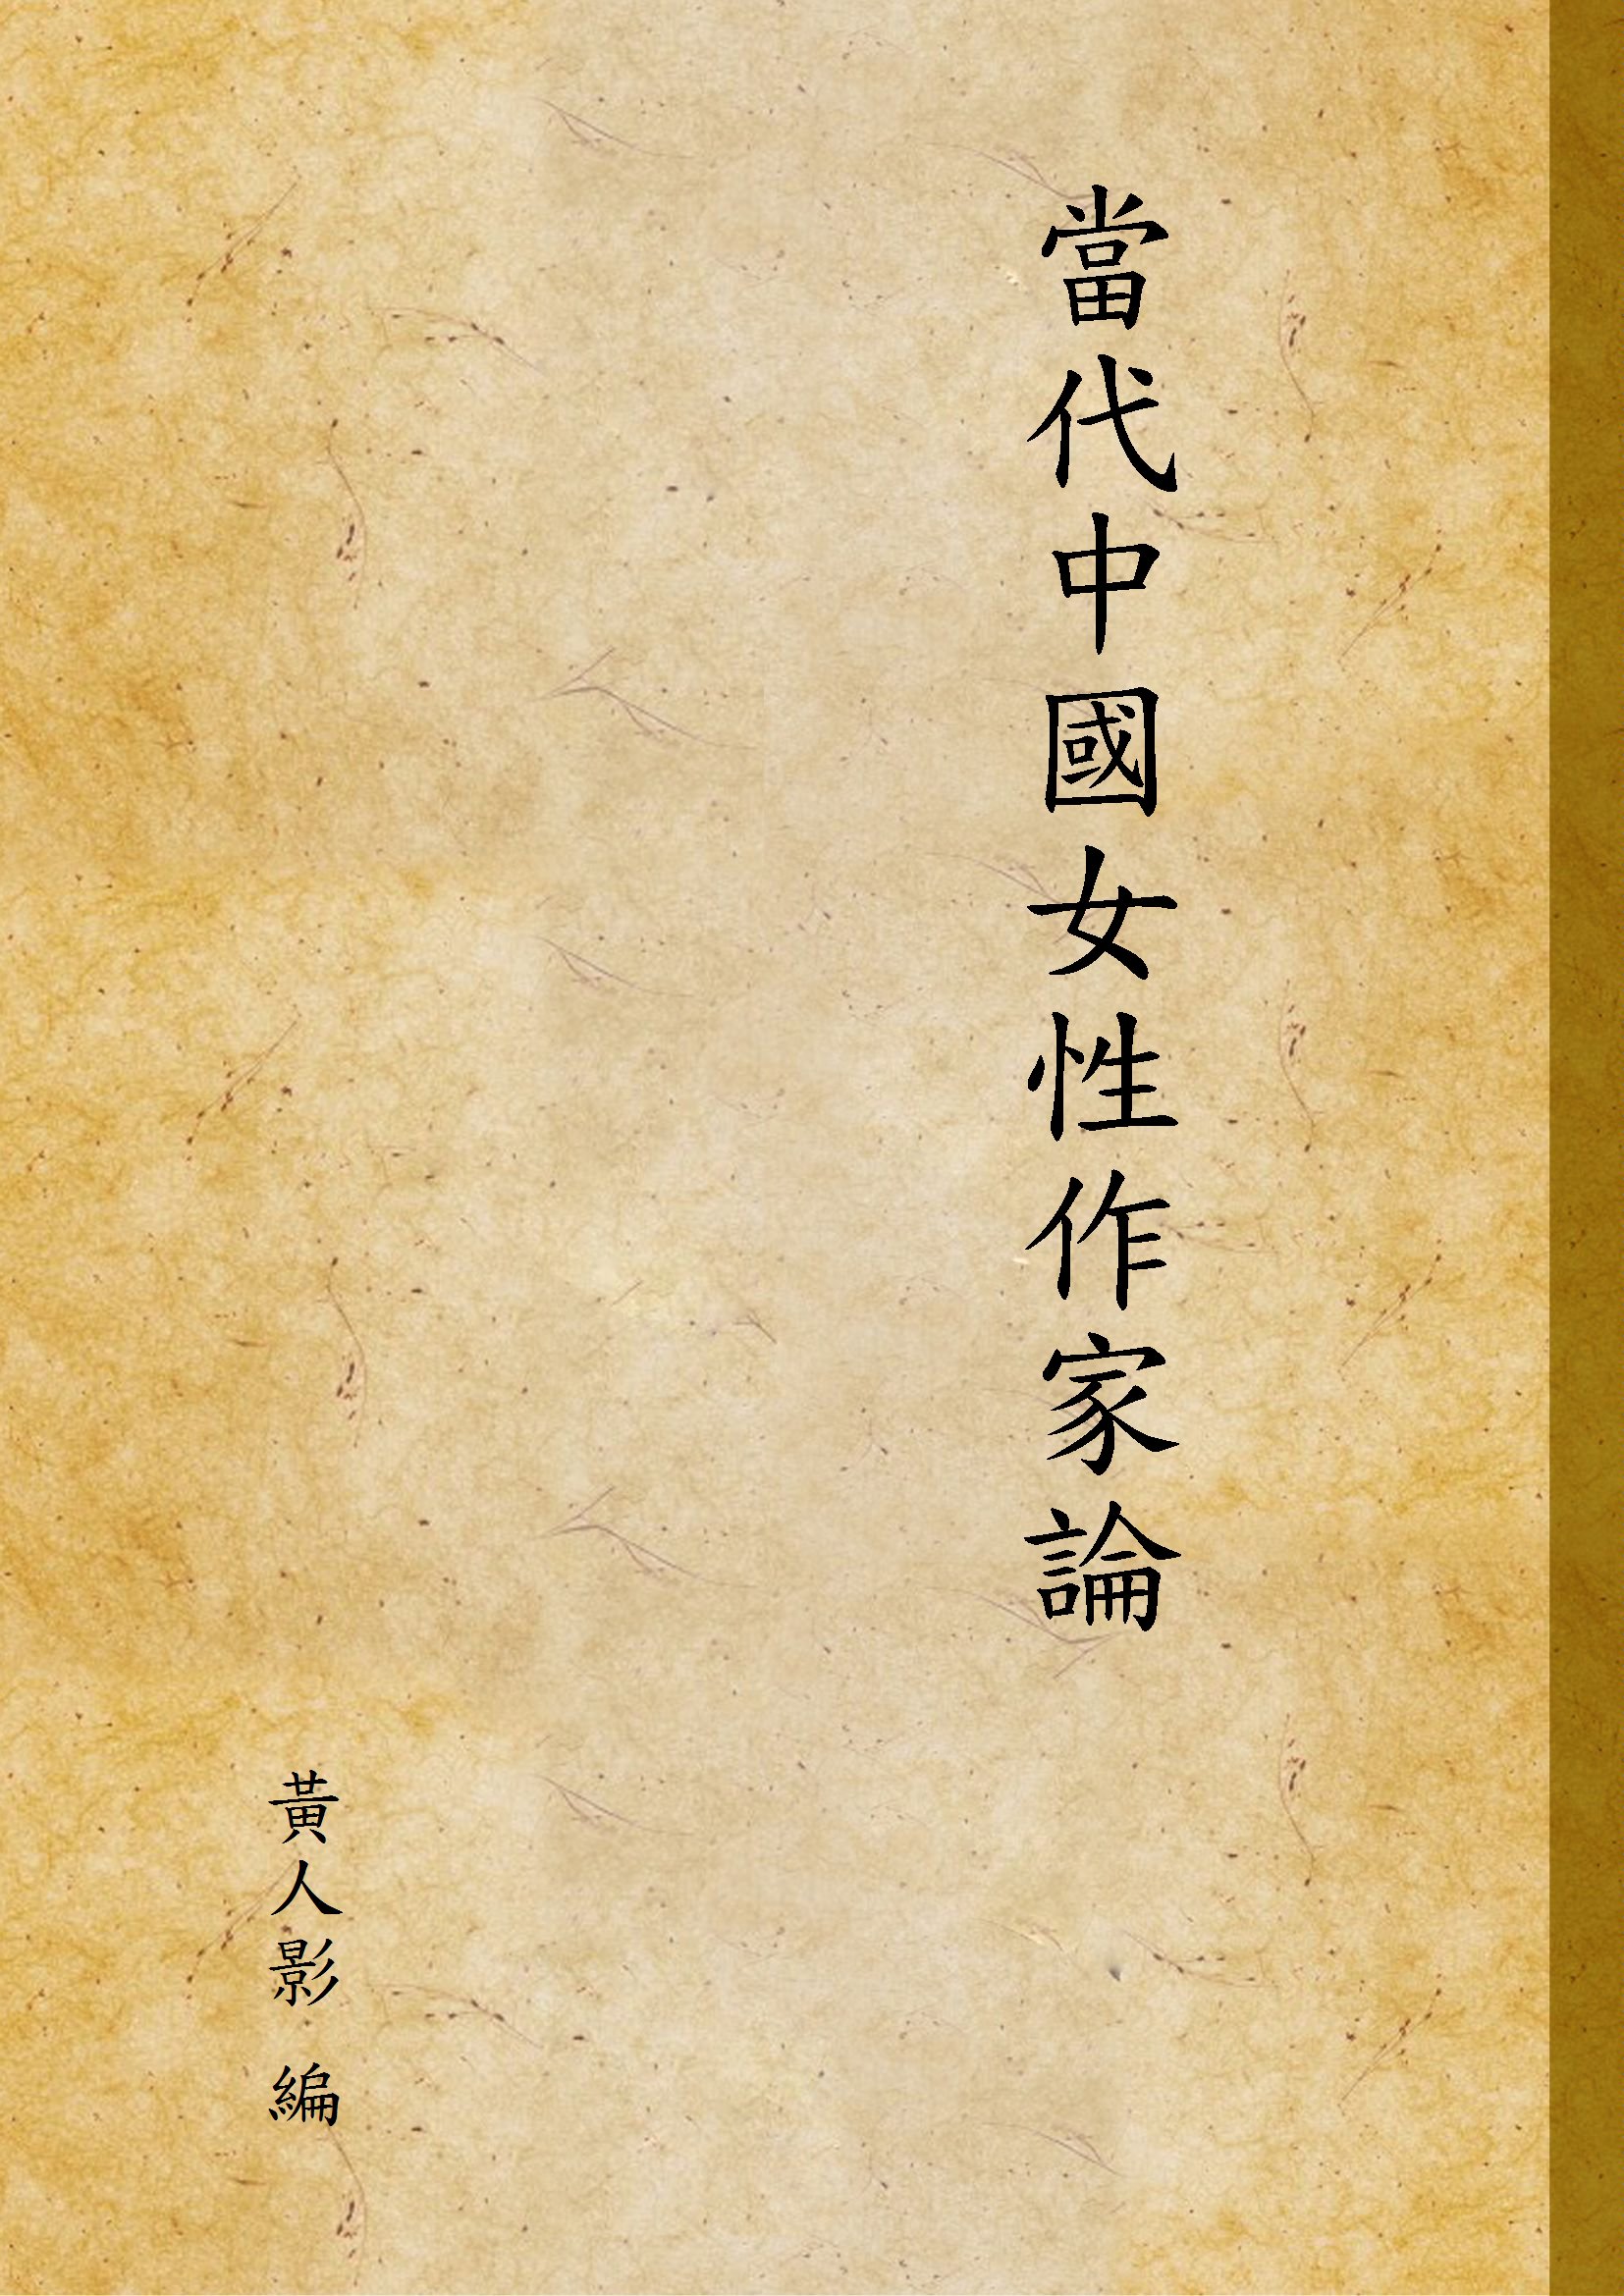 當代中國女性作家論
黃人影 編